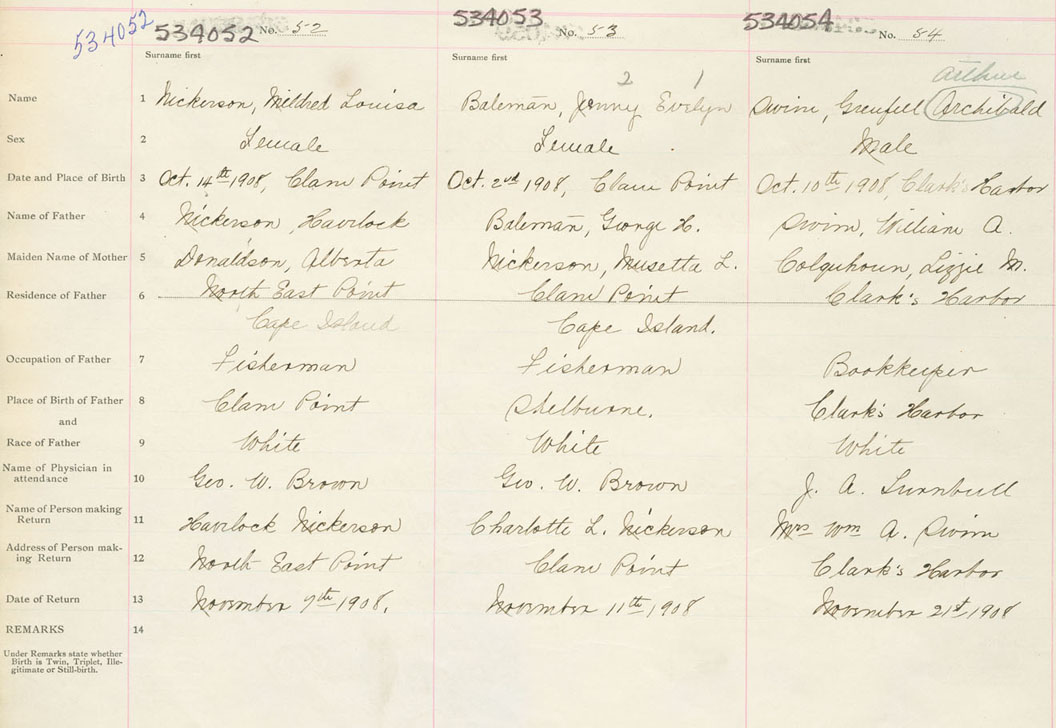 534052
534052 No. 52
534053 No. 53
534054 No. 54
Surname first
Surname first
Surname first
2 1
Arthur
Name 1 Nickerson, Mildred Louisa
Bateman, Jenny Evelyn
Swim, Grenfell Archibald
Sex 2 Female
Female
Male
Date and Place of Birth 3 Oct. 14th 1908, Clam Point
Oct. 2nd 1908, Clam Point
Oct. 10th 1908, Clark's Harbor
Name of Father 4 Nickerson, Havilock
Bateman, George H.
Swim, William A.
Maiden Name of Mother 5 Donaldson, Alberta
Nickerson, Musetta L.
Colquhoun, Lizzie M.
Residence of Father 6 North East Point
Clam Point
Clark's Harbor
Cape Island
Cape Island.
Occupation of Father 7 Fisherman
Fisherman
Bookkeeper
Place of Birth of Father 8 Clam Point
Shelburne.
Clark's Harbor
and
Race of Father 9 White
White
White
Name of Physician in
attendance 10 Geo. W. Brown
Geo. W. Brown
J. A. Turnbull
Name of Person making
Return 11 Havilock Nickerson
Charlotte L. Nickerson
Mrs Wm A. Swim
Address of Person mak-
ing Return 12 North East Point
Clam Point
Clark's Harbor
Date of Return 13 November 9th 1908.
November 11th 1908
November 21st 1908
REMARKS 14
Under Remarks state whether
Birth is Twin, Triplet, Ille-
gitimate or Still-birth.